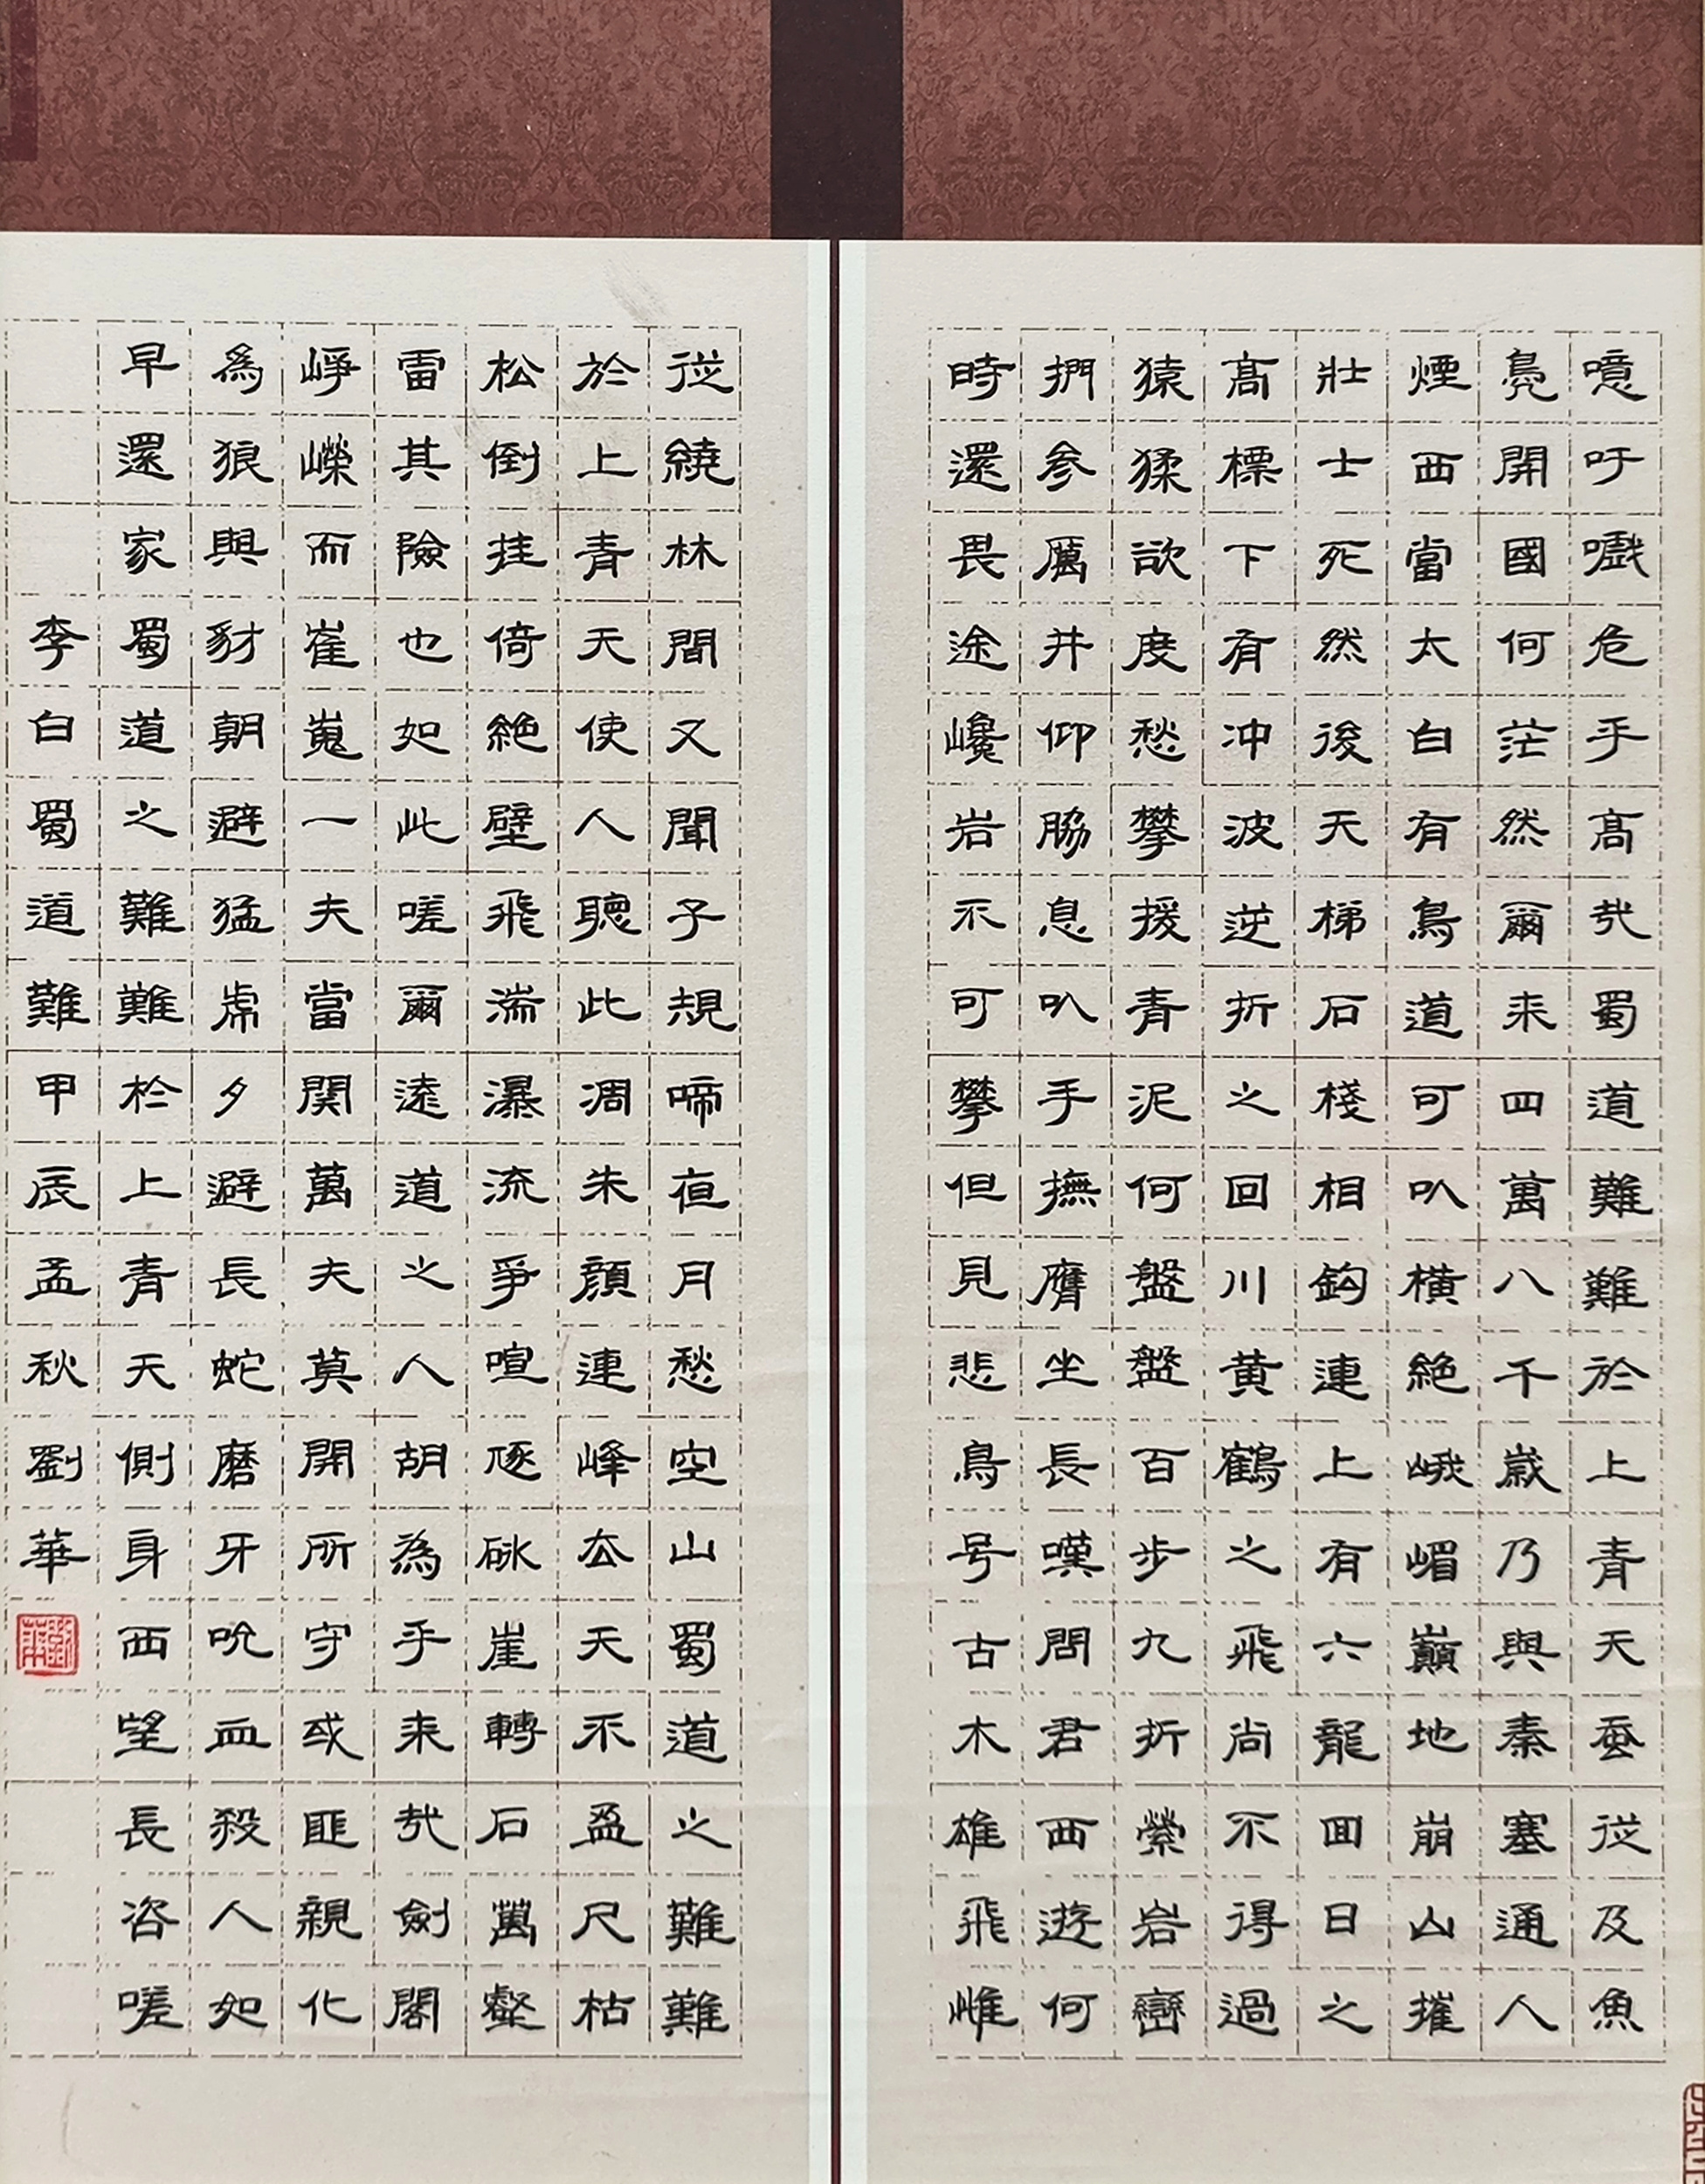 噫吁嚱危乎高哉蜀道難難於上青天蚕從及魚
鳧開國何茫然爾来四萬八千歲乃與秦塞通人
煙西當太白有鳥道可以橫絶峨嵋巔地崩山摧
壯士死然後天梯石棧相鈎連上有六龍回日之
高標下有冲波逆折之回川黄鶴之飛尚不得過
猿猱欲度愁攀援青泥何盤盤百步九折縈岩巒
捫参厲井仰脇息以手撫膺坐長嘆問君西遊何
時還畏途巉岩不可攀但見悲鳥号古木雄飛雌
從繞林間又聞子規啼夜月愁空山蜀道之難難
於上青天使人聽此凋朱顔連峰去天不盈尺枯
松倒挂倚絶壁飛湍瀑流爭喧豗砯崖轉石萬壑
雷其險也如此嗟爾遠道之人胡為乎来哉劍閣
崢嶸而崔嵬一夫當關萬夫莫開所守或匪親化
爲狼與豺朝避猛虎夕避長蛇磨牙吮血殺人如
早還家蜀道之難難於上青天側身西望長咨嗟
李白蜀道難甲辰孟秋劉華
劉華